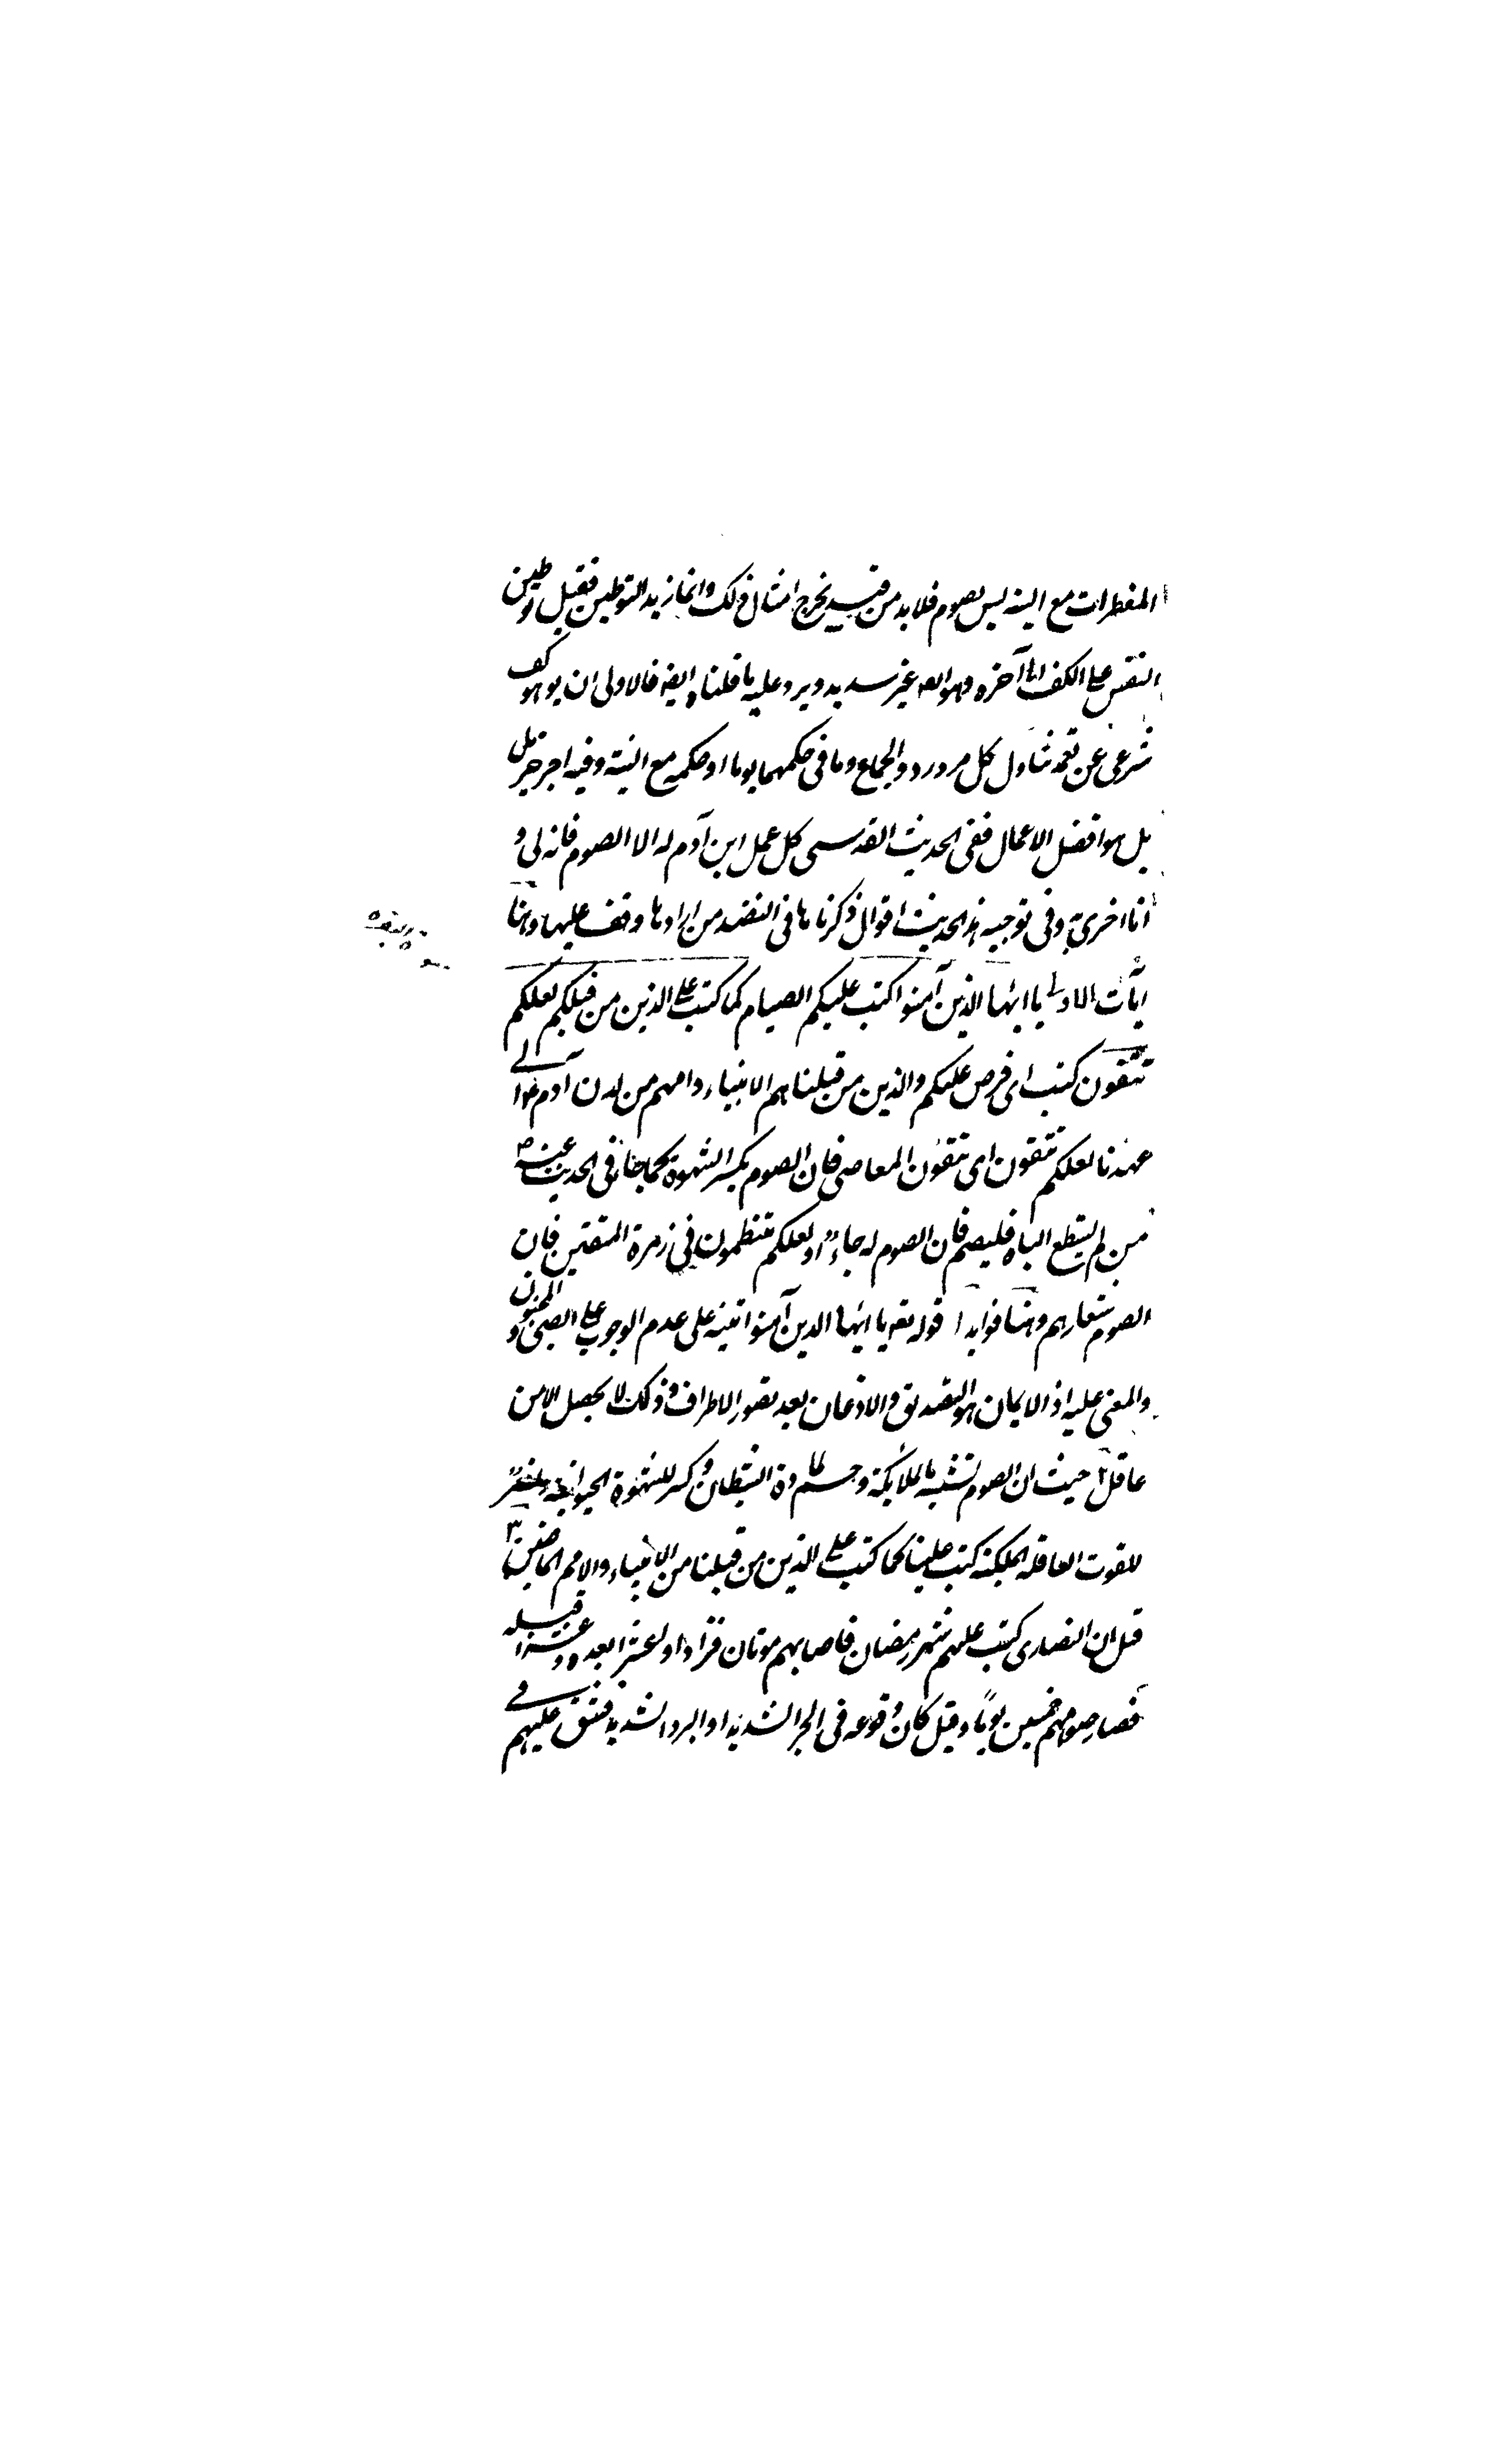 المفطرات مع النية ليس بصوم فلا بد من قيد يخرج امثال ذلك وانما زيد التوطين فقيل توطين
النفس على الكف الى آخره وهو ايضا غير سديد ويرد عليه ما قلناه ايضا فالاولى ان يق هو كف
شرعى عن تعمد تناول كل مزدرد والجماع وما فى حكمهما يوما او حكمه مع النية وفيه اجر جزيل
بل هو افضل الاعمال ففى الحديث القدسى كل عمل ابن آدم له الا الصوم فانه لى و
انا اجزى به وفى توجيه هذا الحديث اقوال ذكرناها فى النضد من ارادها وقف عليها وهنا
آيات الاولى يا ايها الذين آمنوا كتب عليكم الصيام كما كتب على الذين من قبلكم لعلكم
تتقون كتب اى فرض عليكم والذين من قبلنا هم الانبياء واممهم من لدن آدم ع الى
عهدنا لعلكم تتقون اى تتقون المعاصى فان الصوم يكسر الشهوة كما جاء فى الحديث عنه ص
من لم يستطع الباه فليصم فان الصوم له جاء او لعلكم تنتظمون فى زمرة المتقين فان
الصوم شعارهم وهنا فوايد ا قوله تعه يا ايها الذين آمنوا تنبيه على عدم الوجوب على الصبى والمجنون
والمغمى عليه اذ الايمان هو التصديق والاذعان بعد تصور الاطراف وذلك لا يحصل الا من
عاقل ٢ حيث ان الصوم تشبه بالملائكة وحسم لمادة الشيطان وكسر للشهوة الحيوانية
للقوت العاقلة الملكية كتب علينا كما كتب على الذين من قبلنا من الانبياء والامم الماضين ٣
قيل ان النصارى كتب عليهم شهر رمضان فاصابهم موتان فزادوا عشرا بعده وعشرا قبله
فصار صومهم خمسين يوما وقيل كان وقوعه فى الحر الشديد او البرد الشديد فشق عليهم فى